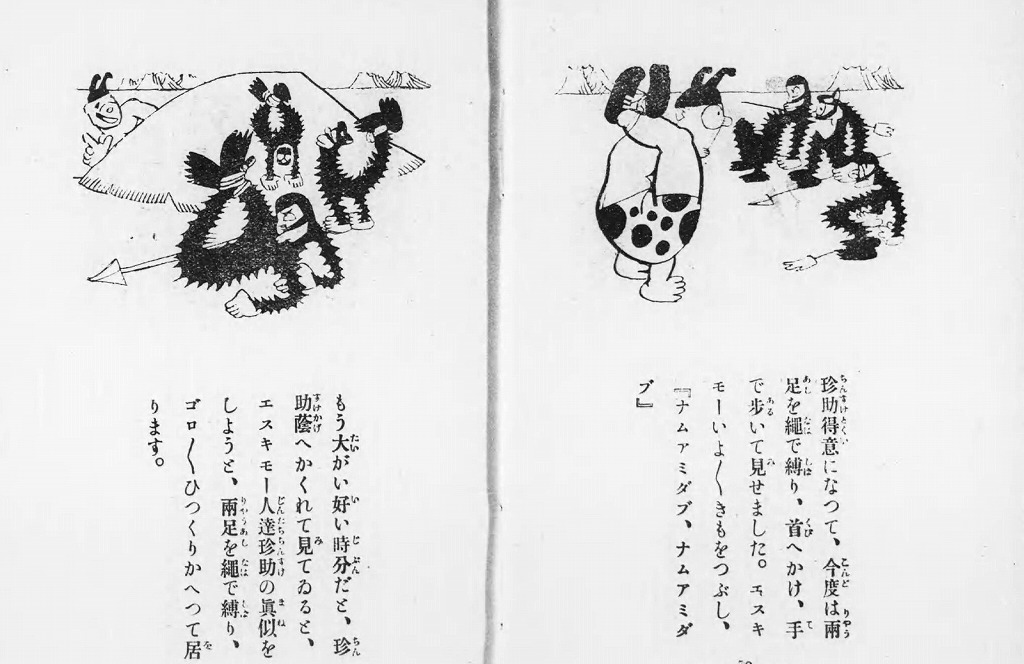 珍助得意になつて、今度は兩
足を繩で縛り、首へかけ、手
で歩いて見せました。エスキ
モーいよ〳〵きもをつぶし、
『ナムアミダブ、ナムアミダ
ブ』
もう大がい好い時分だと、珍
助蔭へかくれて見てゐると、
エスキモー人達珍助の眞似を
しようと、兩足を繩で縛り、
ゴロ〳〵ひつくりかへつて居
ります。